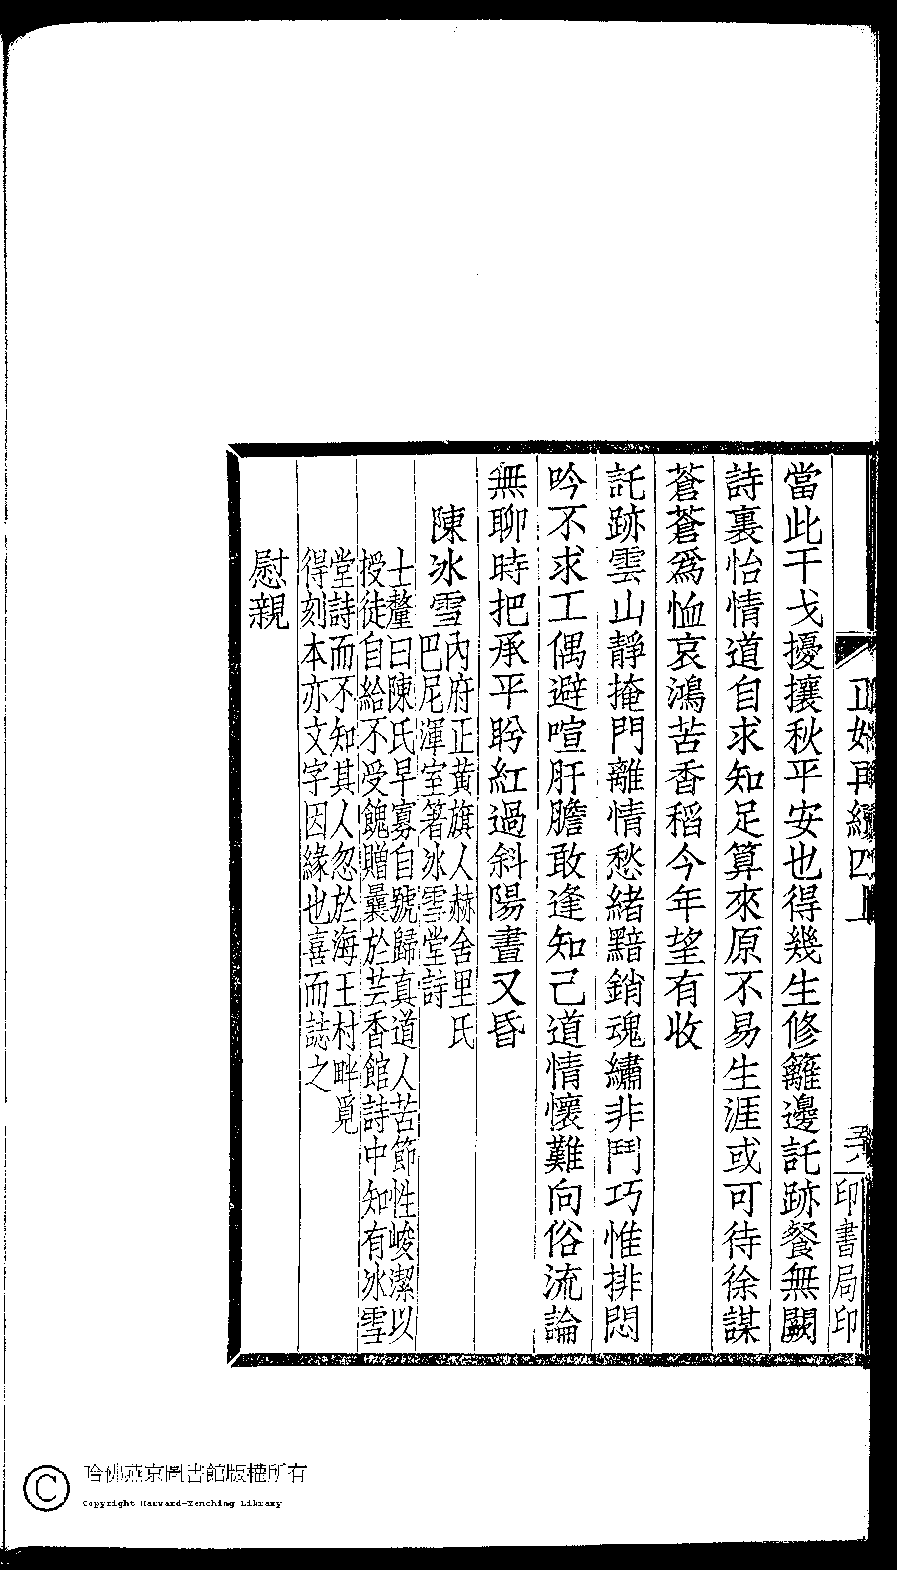 當此干戈擾攘秋平安也得幾生修籬邊託跡餐無闕
詩裏怡情道自求知足算來原不易生涯或可待徐謀
蒼蒼爲恤哀鴻苦香稻今年望有收
託跡雲山靜掩門離情愁緒黯銷魂繡非鬥巧惟排悶
吟不求工偶避喧肝膽敢逢知己道情懷難向俗流論
無聊時把承平盻紅過斜陽晝又昏
陳冰雪
內府正黃旗人赫舍里氏
巴尼渾室箸冰雪堂詩
士釐曰陳氏早寡自號歸真道人苦節性峻潔以
授徒自給不受餽贈曩於芸香館詩中知有冰雪
堂詩而不知其人忽於海王村畔覓
得刻本亦文字因緣也喜而誌之
慰親
正始再續四上
印書局印
哈佛燕京圖書館版權所有
Copyright Harvard-Yenching Library